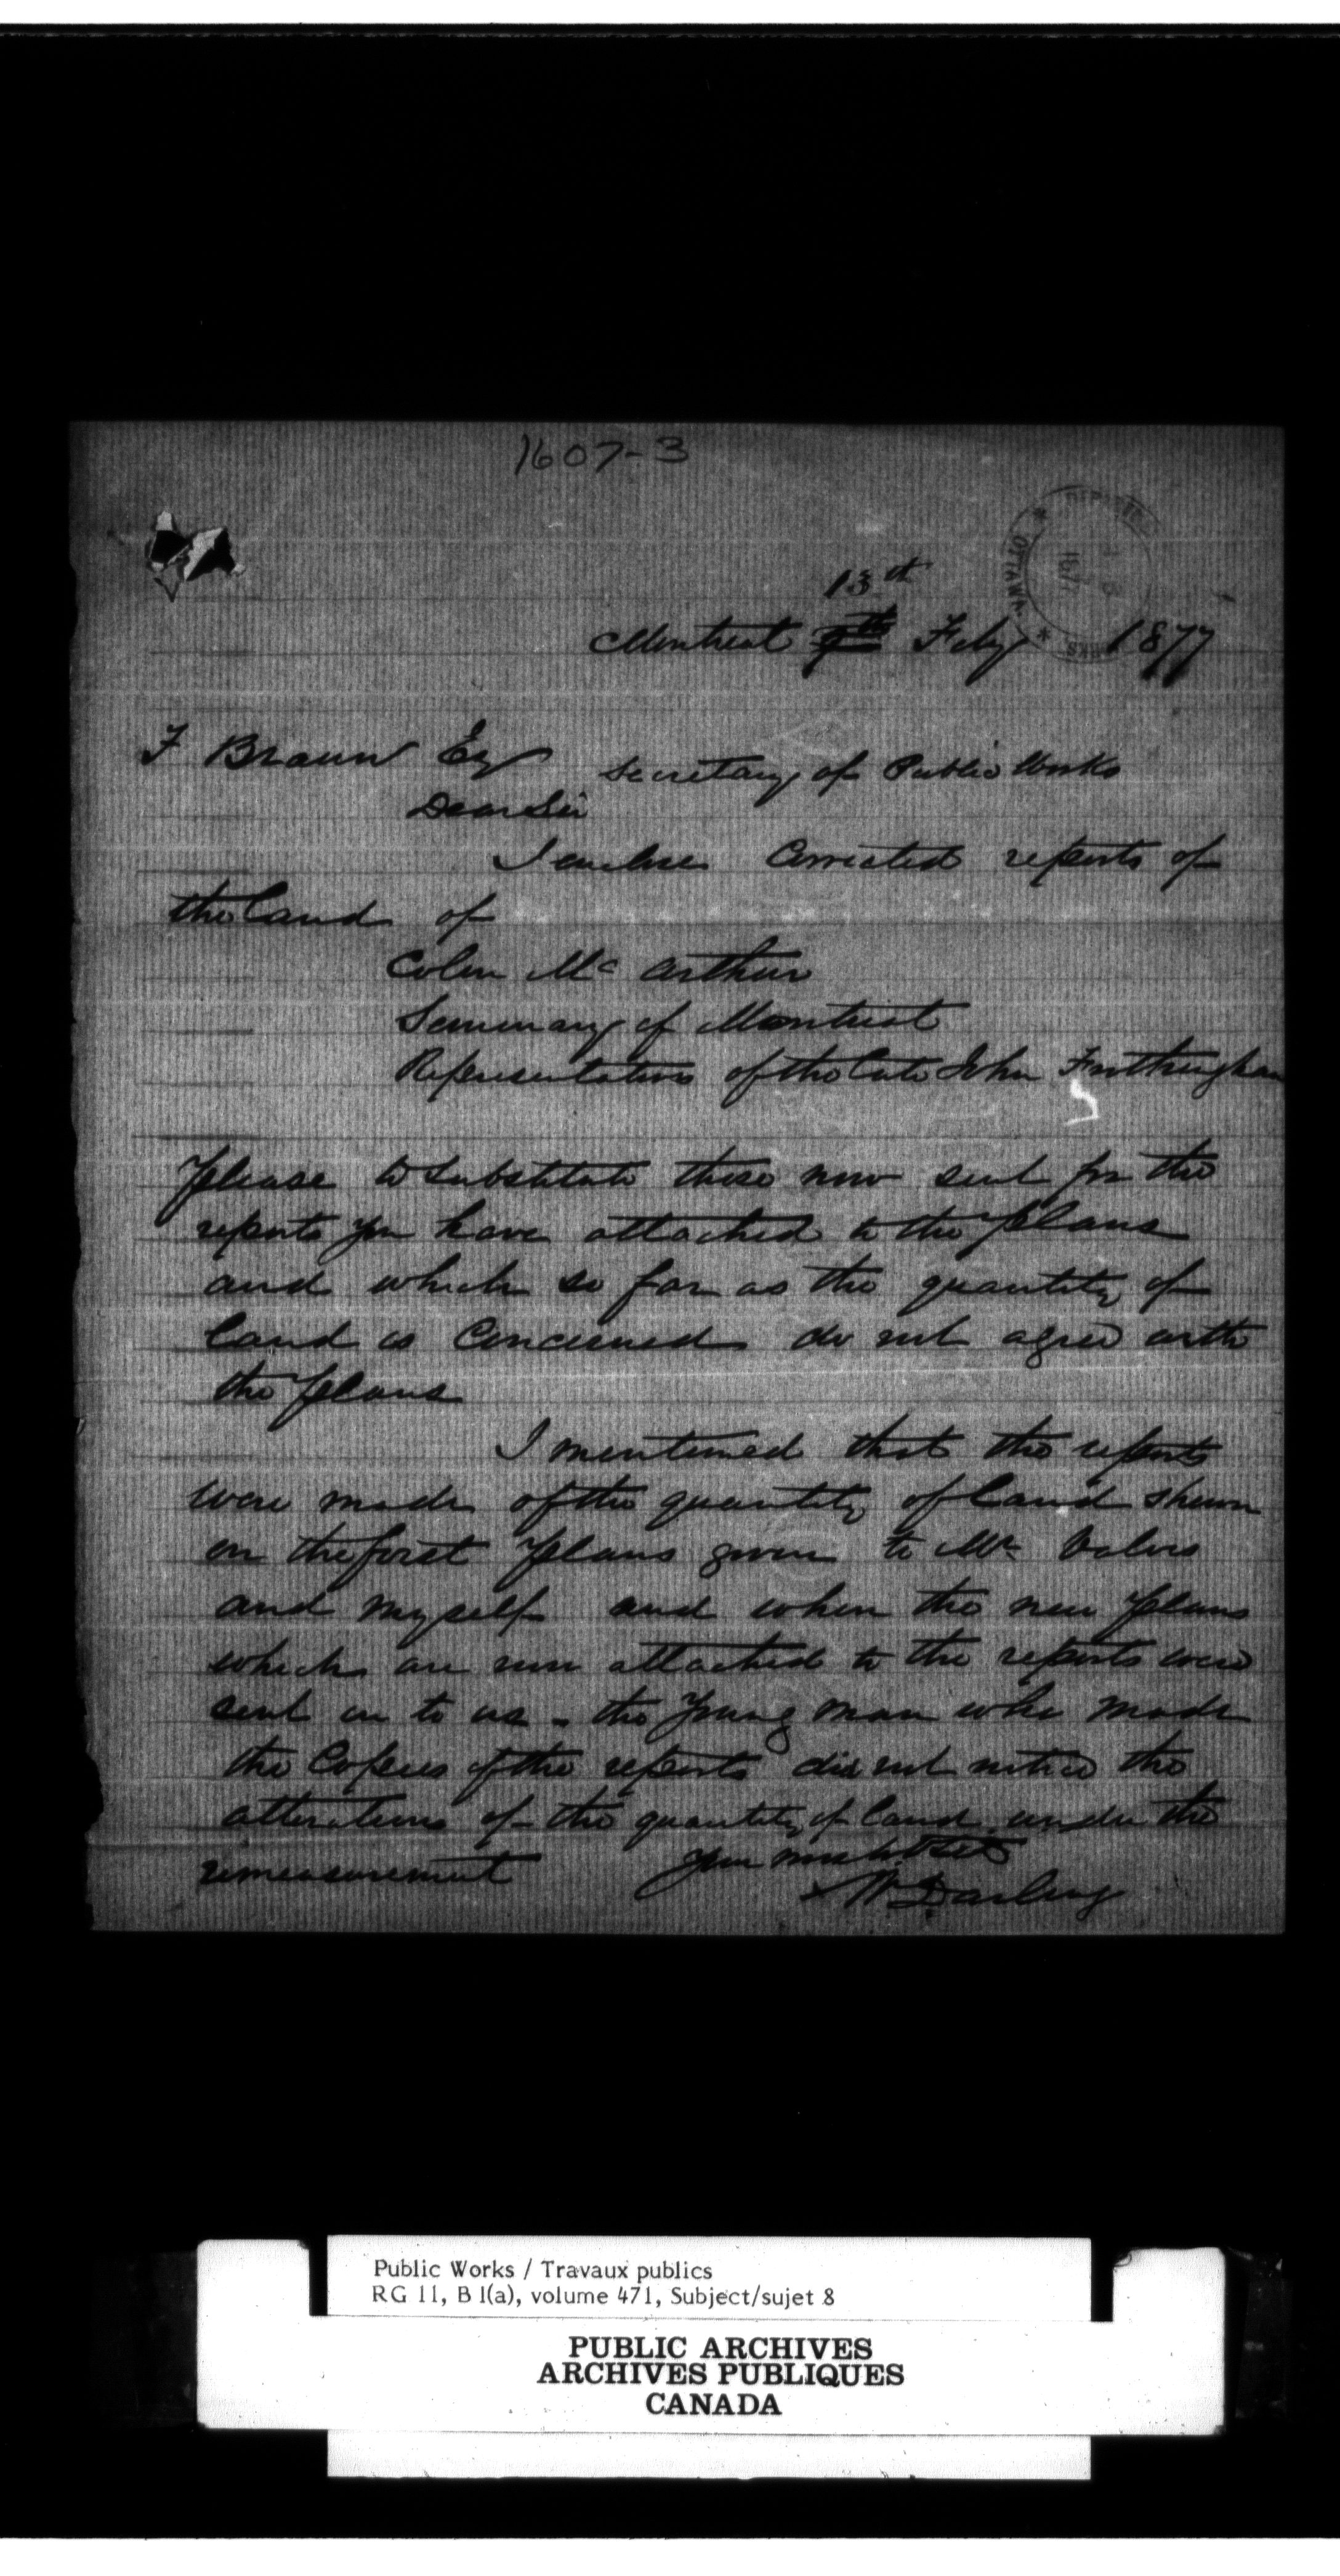 1607-3
13th
Montreal 9th Feby 1877
OTTAWA
1877
F Braun Esq Secretary of Public Works
Dear Sir
I enclose Corrected reports of
the land of
Colin Mc Arthur
Seminary of Montreal
Representatives of the late John Frothingham
Please to substitute these now sent for the
reports you have attached to the plans
and which so far as the quantity of
land is Concerned do not agree with
the plans
I mentioned that the reports
were made of the quantity of land shewn
on the first plans given to Mr Valois
and myself and when the new plans
which are now attached to the reports were
sent in to us - the young man who made
the Copies of the reports did not notice the
alterations of the quantity of land under the
remeasurement Your
W Darling
Public Works / Travaux publics
RG 11, B 1(a), volume 471, Subject/sujet 8
PUBLIC ARCHIVES
ARCHIVES PUBLIQUES
CANADA